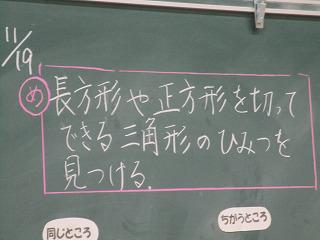 11/19
め 長方形や正方形を切って
できる三角形のひみつを
見つける.
同じところ ちがうところ